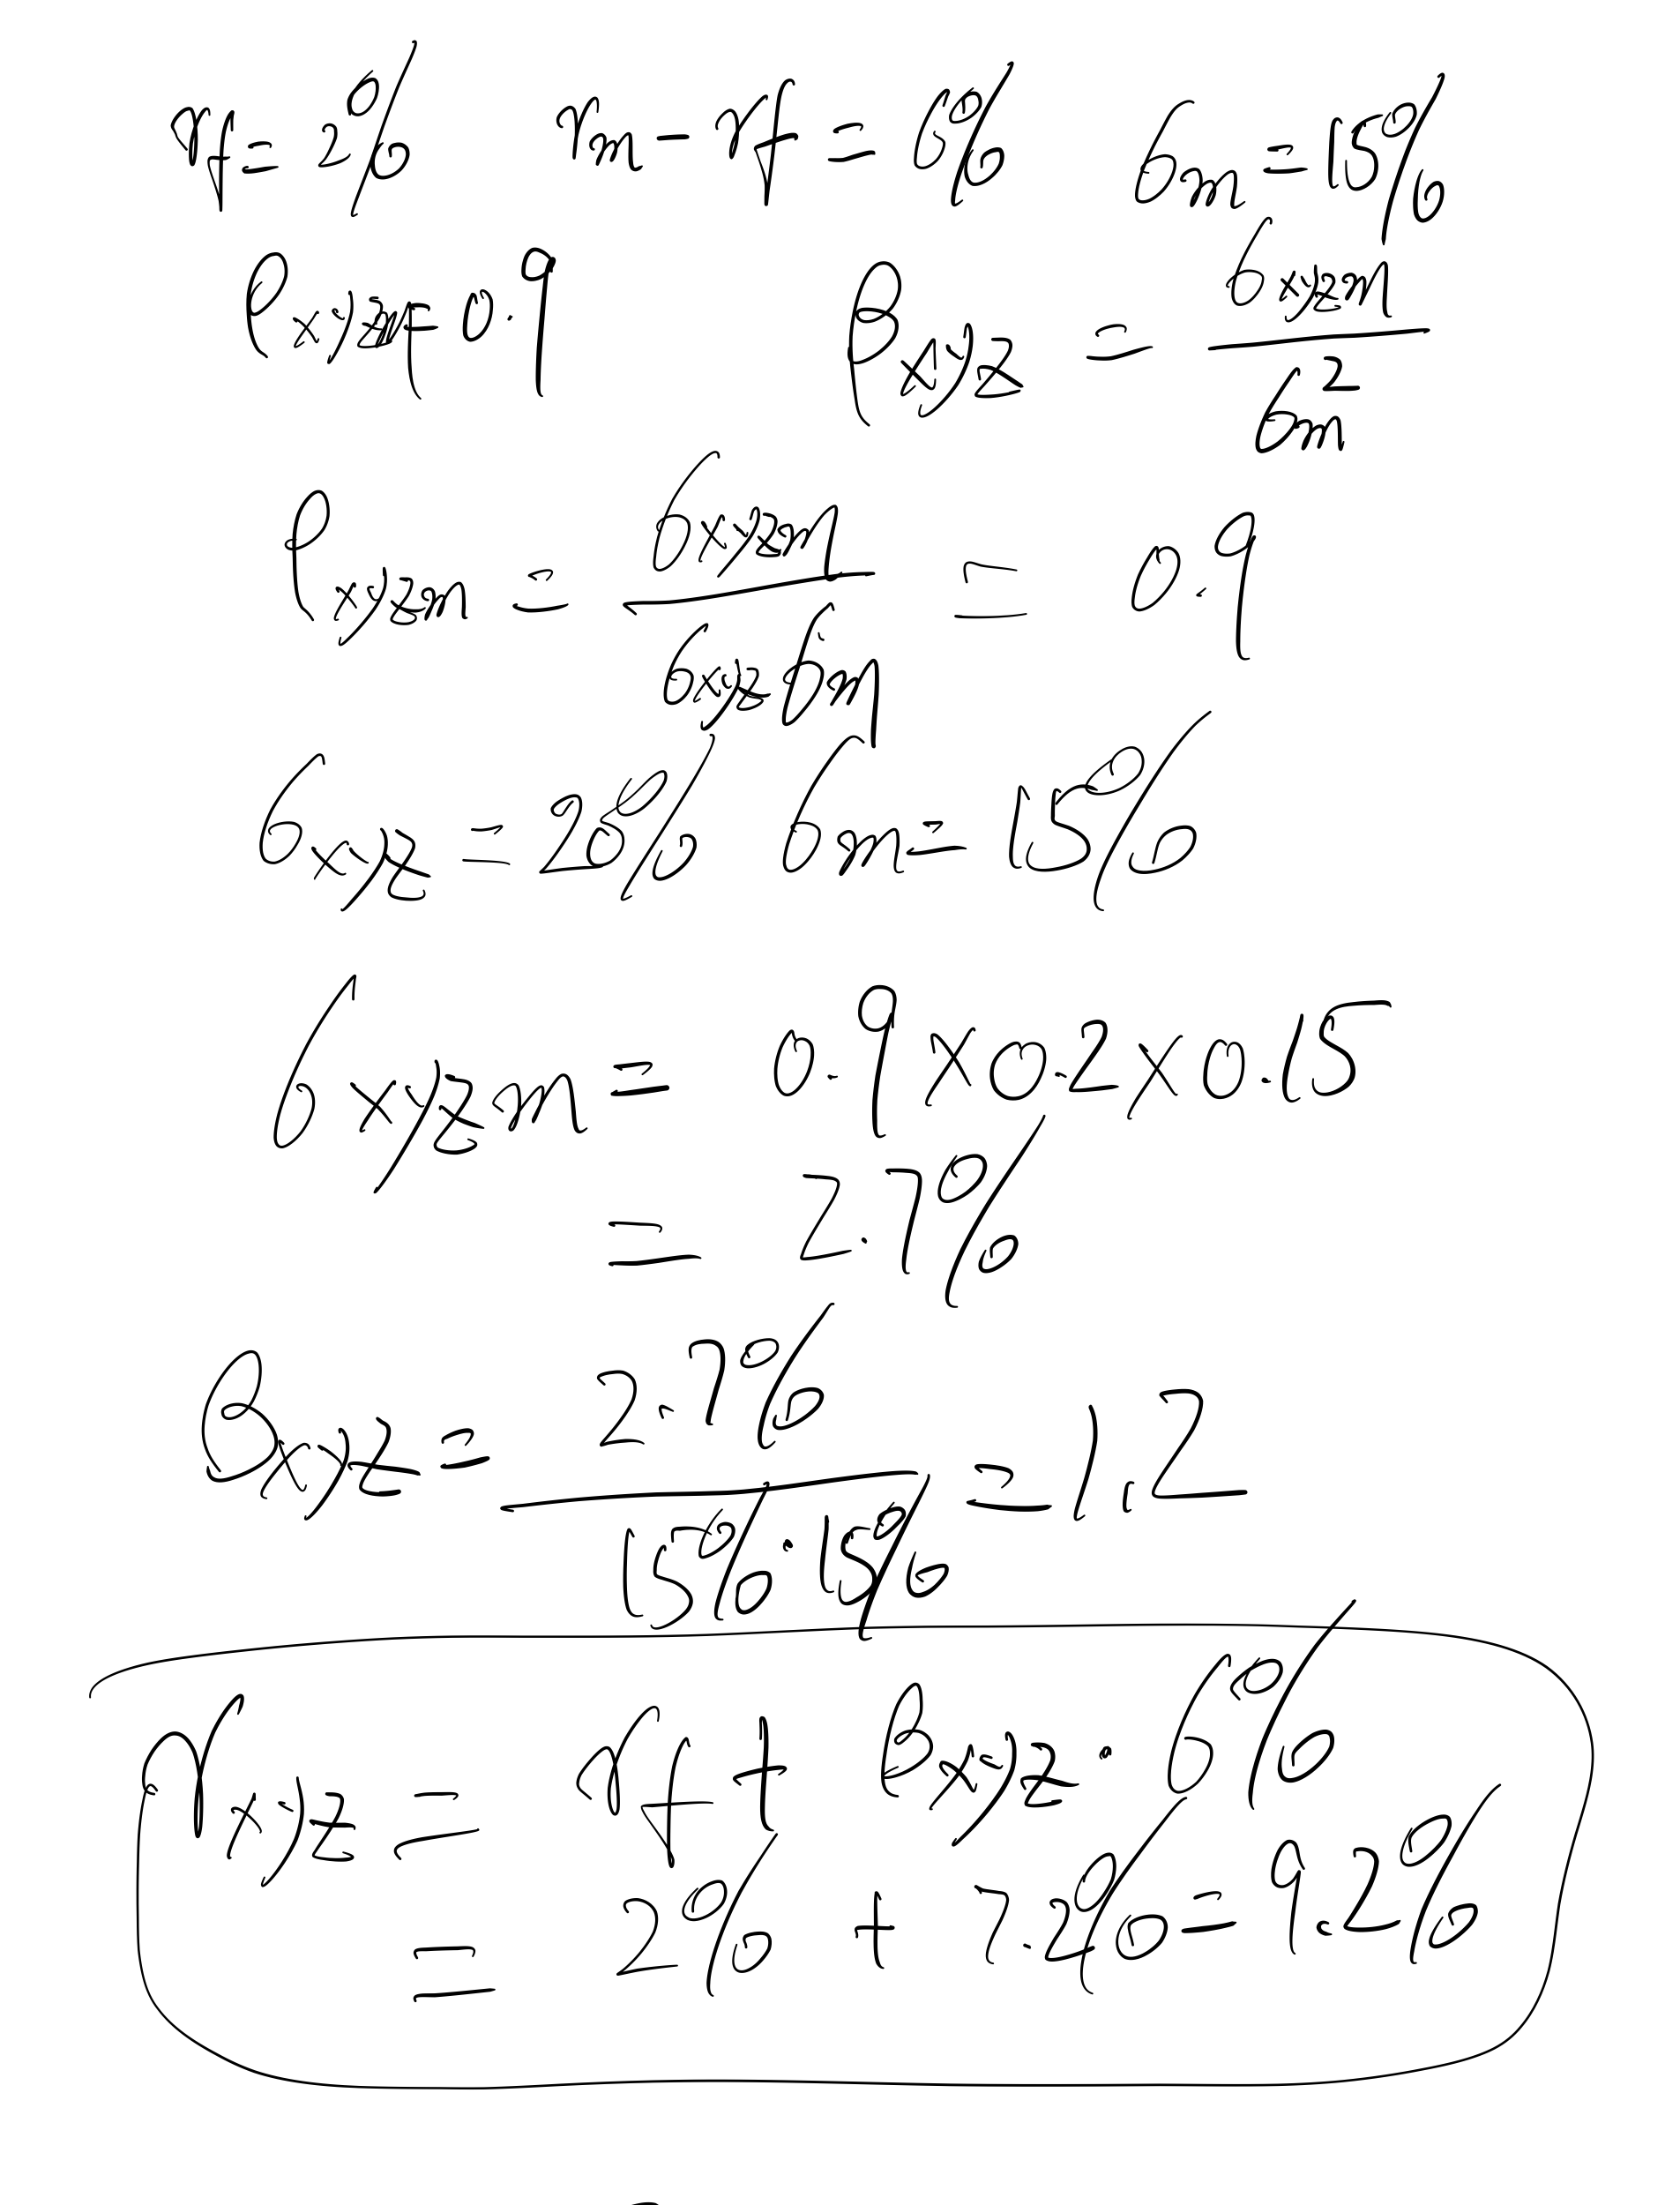 rf = 2% rm - rf = 5% σm = 15%
ρxyz,m = 0.9 βxyz = σxyzm / σm²
ρxyzm = σxyzm / σxyz σm = 0.9
σxyz = 20% σm = 15%
σxyzm = 0.9 x 0.2 x 0.15
= 2.7%
βxyz = 2.7% / 15% · 15% = 1.2
rxyz = rf + βxyz · 6%
= 2% + 7.2% = 9.2%